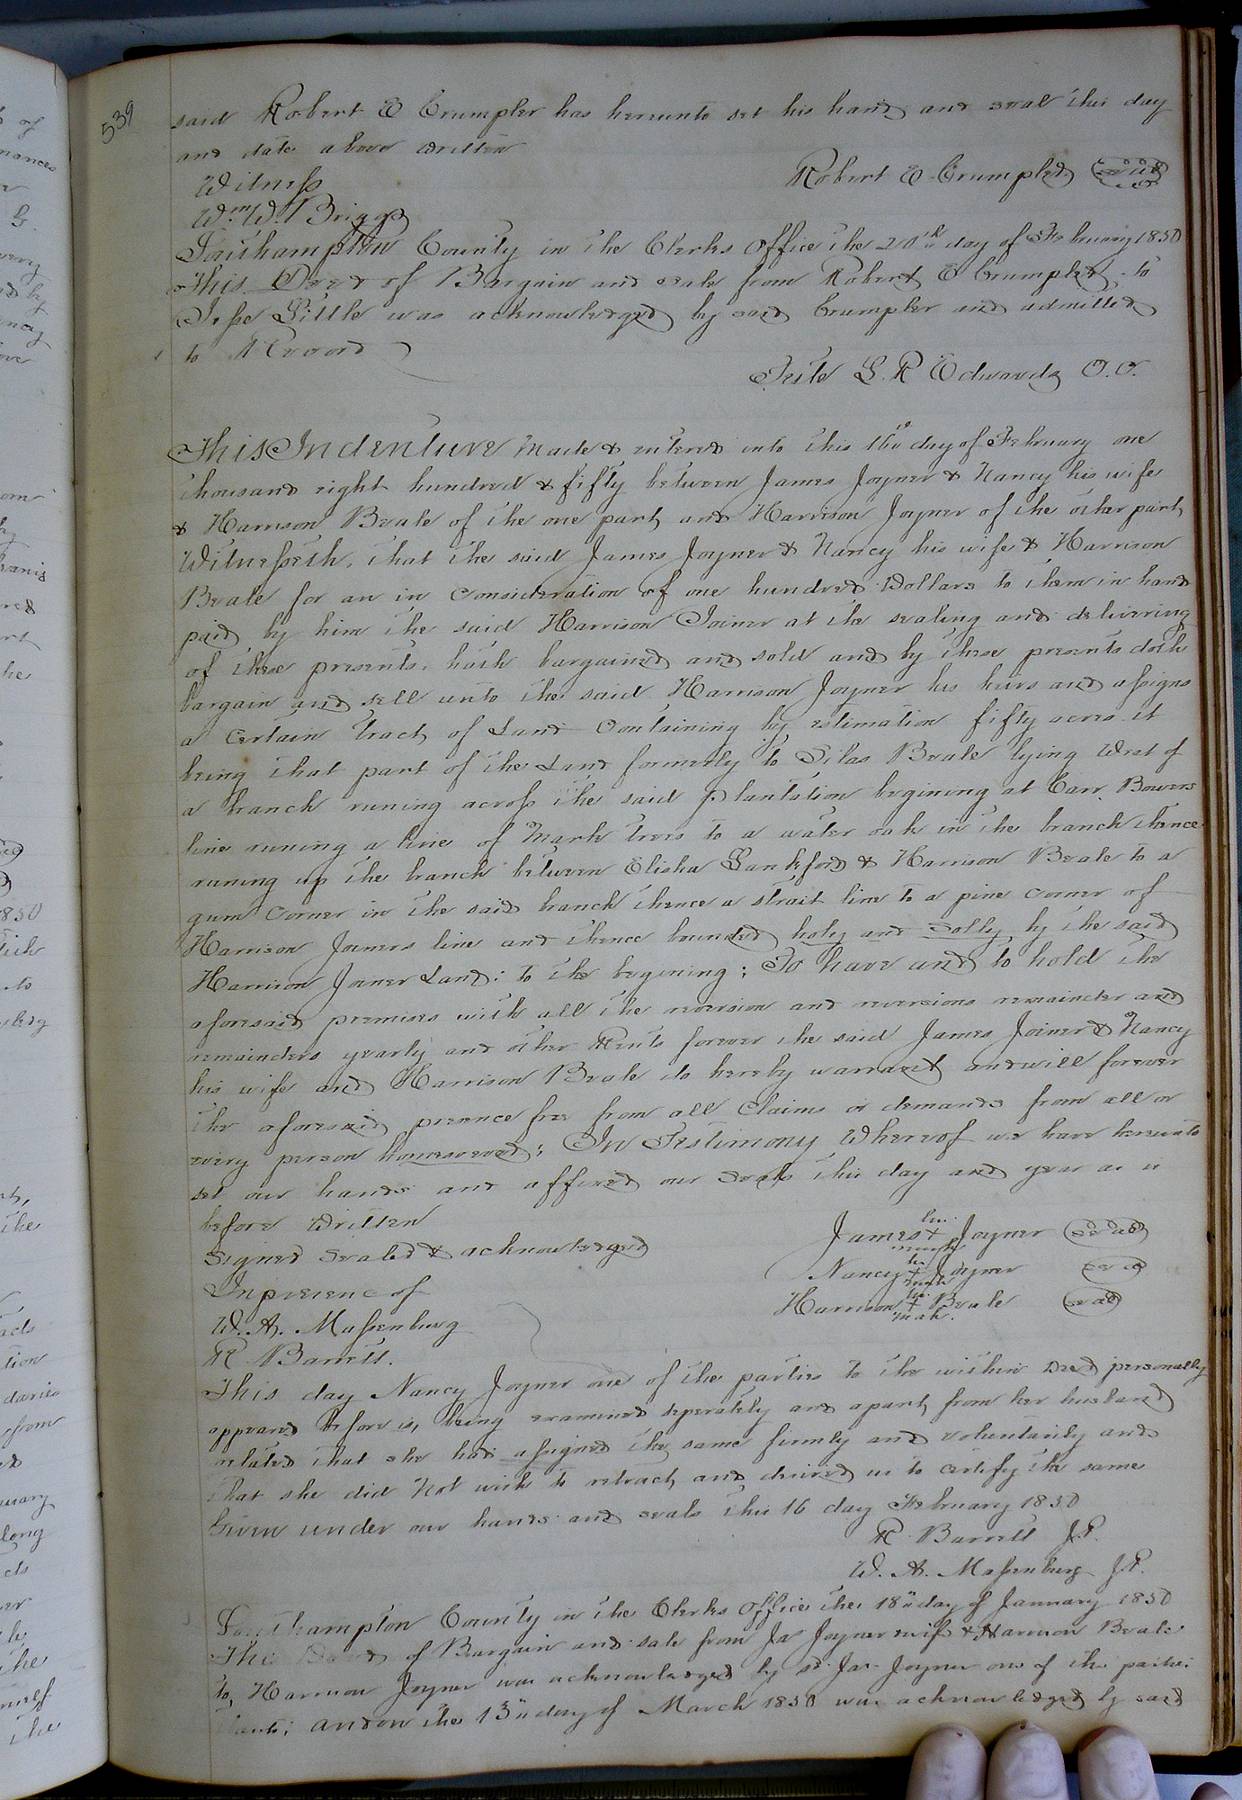 539
said Robert E Crumpler has hereunto set his hand and seal this day
and date above written
Witness
Robert E. Crumpler Seal
Wm W. Briggs
Southampton County in the Clerks office the 20th day of February 1850
This Deed of Bargain and sale from Robert E Crumpler to
Jesse Little was acknowledged by said Crumpler and admitted
to Record
Teste L. R Edwards C.C.
This Indenture made & entered into this 16th day of February one
thousand eight hundred & fifty between James Joyner & Nancy his wife
& Harrison Beale of the one part, and Harrison Joyner of the other part,
Witnesseth, that the said James Joyner & Nancy his wife & Harrison
Beale for an in consideration of one hundred Dollars to them in hand
paid by him the said Harrison Joiner at the sealing and deliverring
of these presents, hath bargained and sold and by these presents doth
bargain and sell unto the said Harrison Joyner his heirs and assigns
a certain tract of Land containing by estimation fifty acres it
being that part of the Land formerly to Silas Beale lying West of
a branch runing across the said plantation begining at Carr. Bowers
line runing a line of mark trees to a water oak in the branch thence
runing up the branch between Elisha Lankford & Harrison Beale to a
gum corner in the said branch thence a strait line to a pine corner of
Harrison Joiners line and thence bounded holy and Solly by the said
Harrison Joiner Land: to the begining; To have and to hold the
aforesaid premises with all the reversion and reversions remainder and
remainders yearly and other Rents forever the said James Joiner & Nancy
his wife and Harrison Beale do hereby warrant and will forever
the aforesaid presence free from all Claims or demands from all or
every person homesoever; In Testimony Whereof we have hereunto
set our hands and affixed our Seals this day and year as is
before Written
Signed Sealed & acknowledged
In presence of
W. A. Massenburg
R Barrett.
James his + mark Joyner Seal
Nancy her + mark Joyner Seal
Harrison his + mark. Beale Seal
This day Nancy Joyner one of the parties to the within Deed personally
appeared before us, being examined seperately and apart, from her husband
related that she had assigned the same firmly and voluntarily and
that she did not wish to retract, and desired us to certify the same
Given under our hands and seals this 16 day February 1850
R. Barrett J.P.
W. A. Massenburg J.P.
Southampton County in the Clerks office the 18th day of January 1850
This Deed of Bargain and sale from Jas Joyner wife & Harrison Beale
to, Harrison Joyner was acknowledged by sd. Jas. Joyner one of the parties
and on the 13th day of March 1850 was acknowledged by said